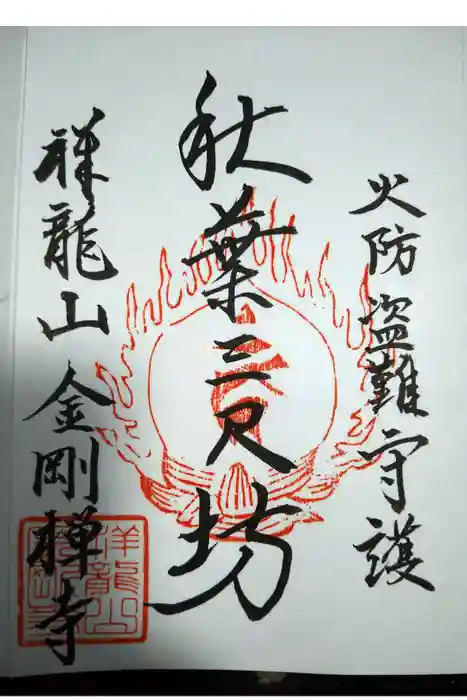 火防盗難守護
秋葉三尺坊
祥龍山金剛禅寺